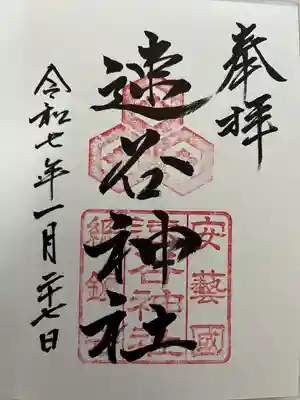 奉拝
速谷神社
安藝國
速谷神社
令和七年一月二十七日